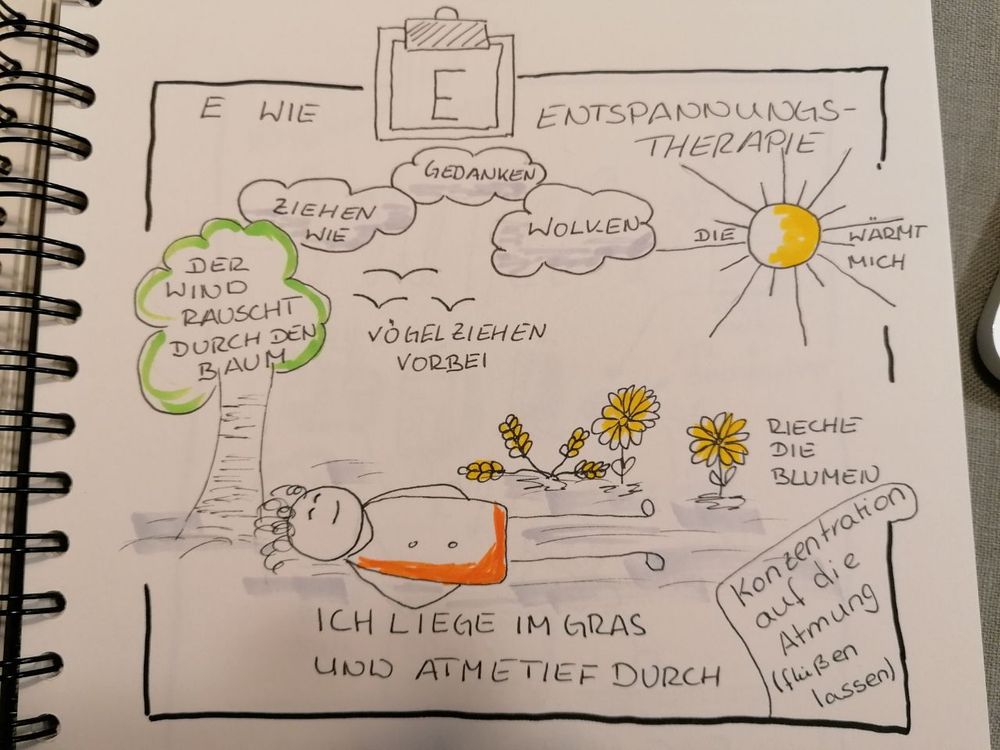 E
E WIE
ENTSPANNUNGS-
THERAPIE
GEDANKEN
ZIEHEN
WIE
WOLKEN
DIE
WÄRMT
MICH
DER
WIND
RAUSCHT
DURCH DEN
BAUM
VÖGEL ZIEHEN
VORBEI
RIECHE
DIE
BLUMEN
Konzentration
auf die
Atmung
(flüßen
lassen)
ICH LIEGE IM GRAS
UND ATME TIEF DURCH